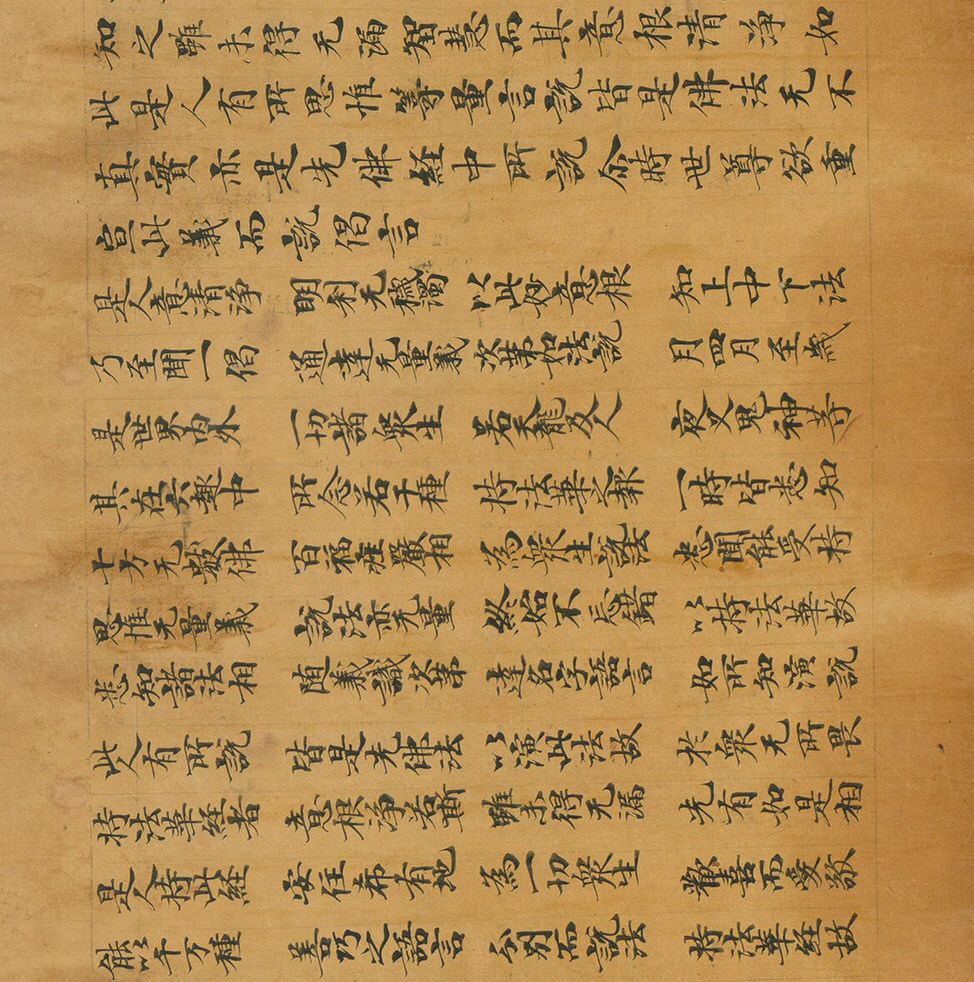 知之雖未得无漏智慧而其意根清淨如
此是人有所思惟籌量言說皆是佛法无不
真實亦是先佛經中所說尒時世尊欲重
宣此義而說偈言
是人意清淨 明利无穢濁 以此妙意根 知上中下法
乃至聞一偈 通達无量義 次第如法說 月四月至歲
是世界內外 一切諸衆生 若天龍及人 夜叉鬼神等
其在六趣中 所念若干種 持法華之報 一時皆悉知
十方无數佛 百福莊嚴相 為衆生說法 悉聞能受持
思惟无量義 說法亦无量 終始不忘錯 以持法華故
悉知諸法相 隨義識次第 達名字語言 如所知演說
此人有所說 皆是先佛法 以演此法故 於衆无所畏
持法華經者 意根淨若斯 雖未得无漏 先有如是相
是人持此經 安住希有地 為一切衆生 歡喜而愛敬
能以千万種 善巧之語言 分別而說法 持法華經故